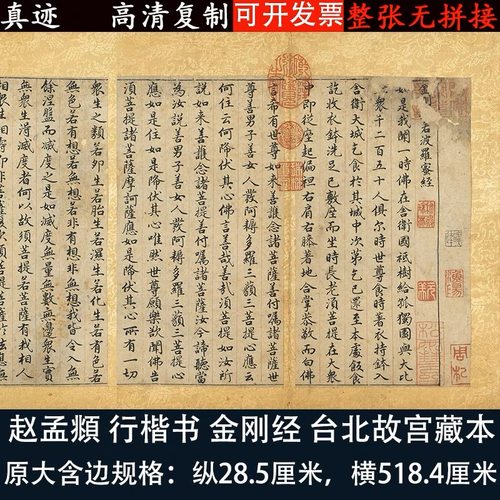 真迹 高清复制 可开发票 整张无拼接
金剛
若波羅蜜經
如是我聞一時佛在舍衛國祇樹給孤獨園與大比
衆千二百五十人俱尔時世尊食時著衣持鉢入
舍衛大城乞食於其城中次第乞已還至本處飯食
訖收衣鉢洗足已敷座而坐時長老須菩提在大衆
中即從座起偏袒右肩右膝著地合掌恭敬而白佛
言希有世尊如来善護念諸菩薩善付囑諸菩薩世
尊善男子善女人發阿耨多羅三藐三菩提心應云
何住云何降伏其心佛言善哉善哉須菩提如汝所
說如来善護念諸菩薩善付囑諸菩薩汝今諦聽當
為汝說善男子善女人發阿耨多羅三藐三菩提心
應如是住如是降伏其心唯然世尊願樂欲聞佛告
須菩提諸菩薩摩訶薩應如是降伏其心所有一切
衆生之類若卵生若胎生若濕生若化生若有色若
無色若有想若無想若非有想非無想我皆令入
餘涅槃而滅度之如是滅度無量無數無邊衆生實
無衆生得滅度者何以故須菩提若菩薩有我相人
赵孟頫 行楷书 金刚经 台北故宫藏本
原大含边规格：纵28.5厘米，横518.4厘米